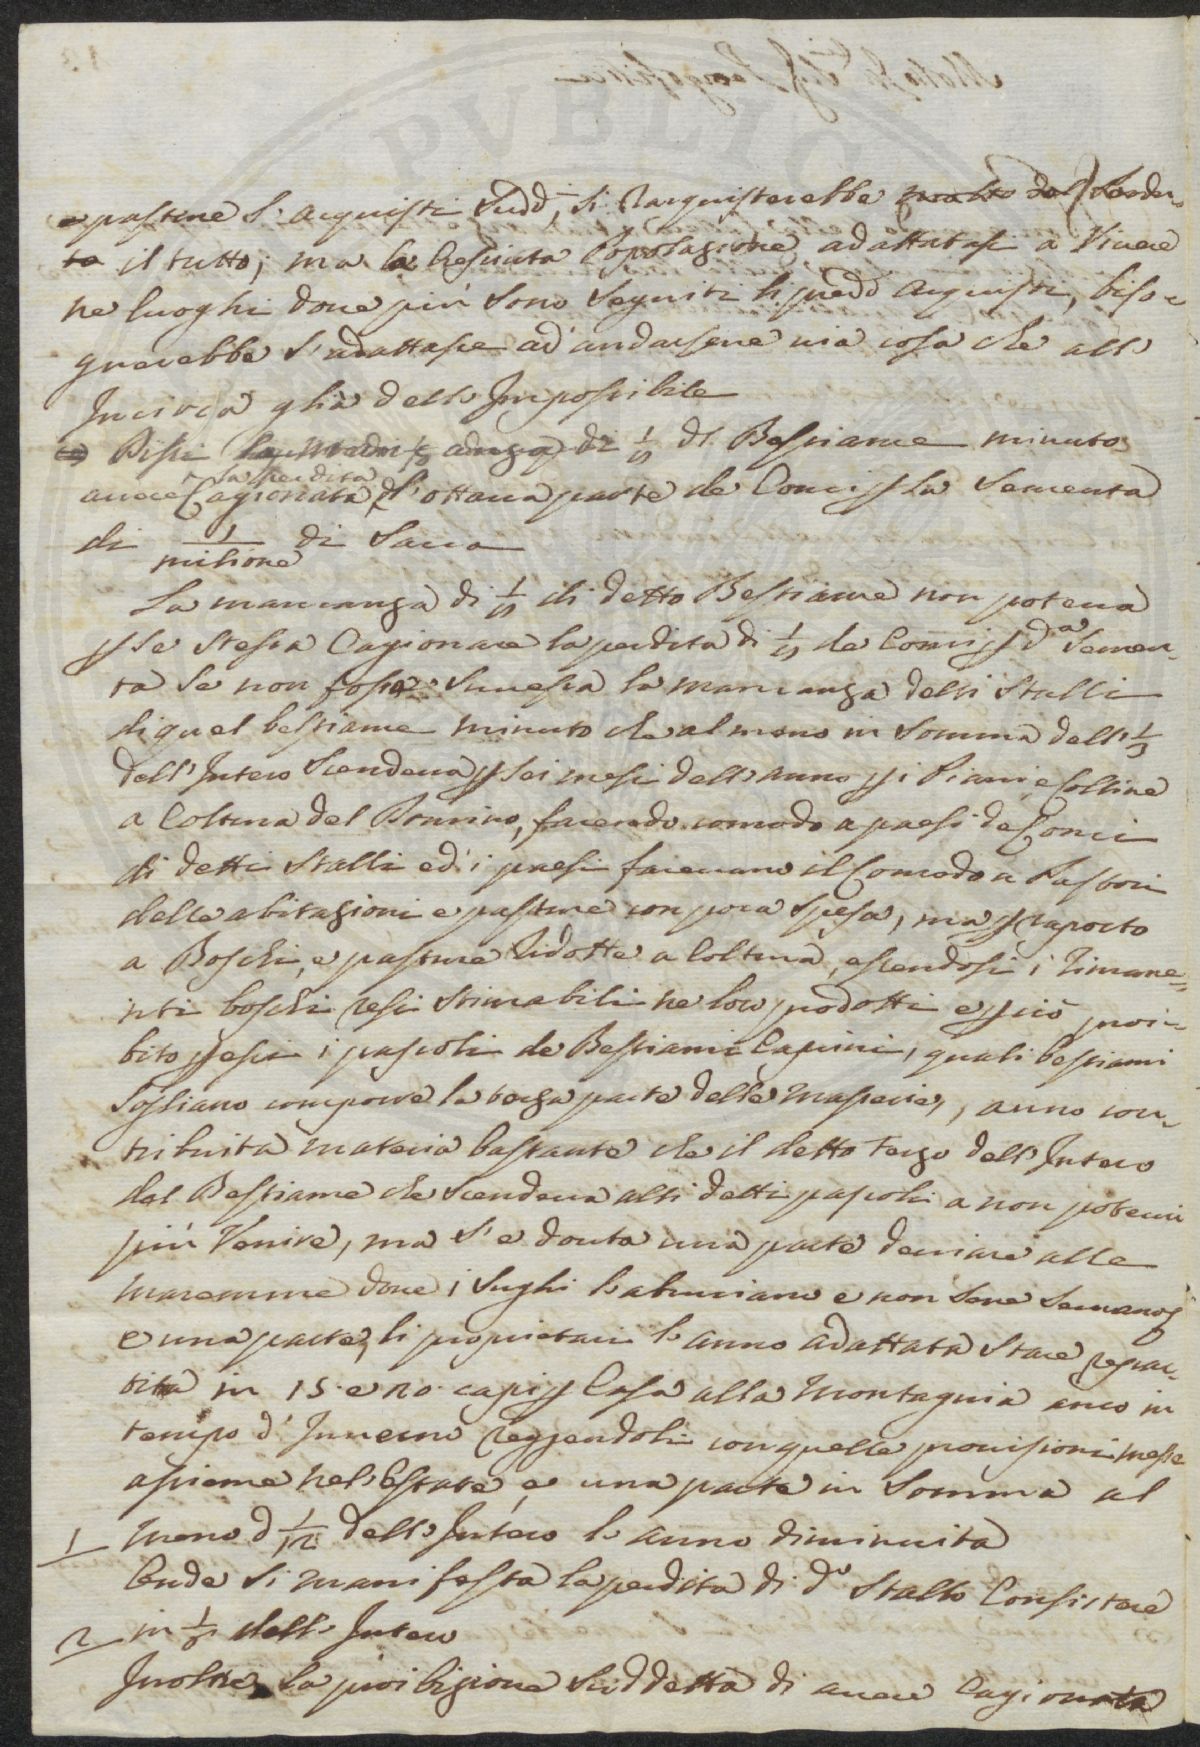 e pasture s'acquisti Sudd.i, si Racquisterebbe molto del Perdu-
to il tutto; ma la Cresciuta Popolazione adattatasi a Vivere
ne luoghi dove più sono seguiti li predd. acquisti, biso-
gnerebbe s'adattasse ad'andarsene via cosa che all'
Incirca ghià dell'Impossibile
Dissi di 1/9 di Bestiame minuto
avere Cagionata la perdita d'ottava parte de Conci p La Sementa
di 1/milione di Sacca
La mancanza di 1/9 di detto Bestiame non poteva
p se stessa Cagionare la perdita di 1/9 de Conci p d.a Semen-
ta se non fosse Sucessa la mancanza delli Stalli
di quel bestiame minuto che al meno in Somma dell' 1/3
dell'Intero Scendeva p sei mesi dell'anno p i Piani e Colline
a Coltura del Domino, facendo comodo a paesi de Conci
di detti Stalli ed' i paesi facevano il Comodo a Pastori
delle abitazioni e pasture con poca spesa, ma p raporto
a Boschi, e pasture Ridotte a Coltura, essendosi i Rimane-
nti boschi resi stimabili ne loro prodotti e p ciò proi-
bito p essi i pascoli de Bestiami Caprini, quali bestiami
Sogliano comporre la terza parte delle Masserie, anno con-
tribuita materia bastante che il detto terzo dell'Intero
del Bestiame che Scendeva alli detti pascoli a non potervi
più Venire, ma s'e dovuta una parte deviare alle
maremme dove i Sughi l'abruciano e non sene Servano
e una parte, li proprietari l'anno adattata Stare repar-
tita in 15 e 20 capi p Casa alla Montagnia anco in
tempo d'Inverno reggendoli con quelle provisioni messe
assieme nel'Estate, e una parte in Somma al
1 meno d 1/12 dell'Intero l'anno diminuita
Onde si manifesta la perdita di d.o Stallo Consistere
2 in dell'Intero
Inoltre, La proibizione Suddetta di avere Cagionata